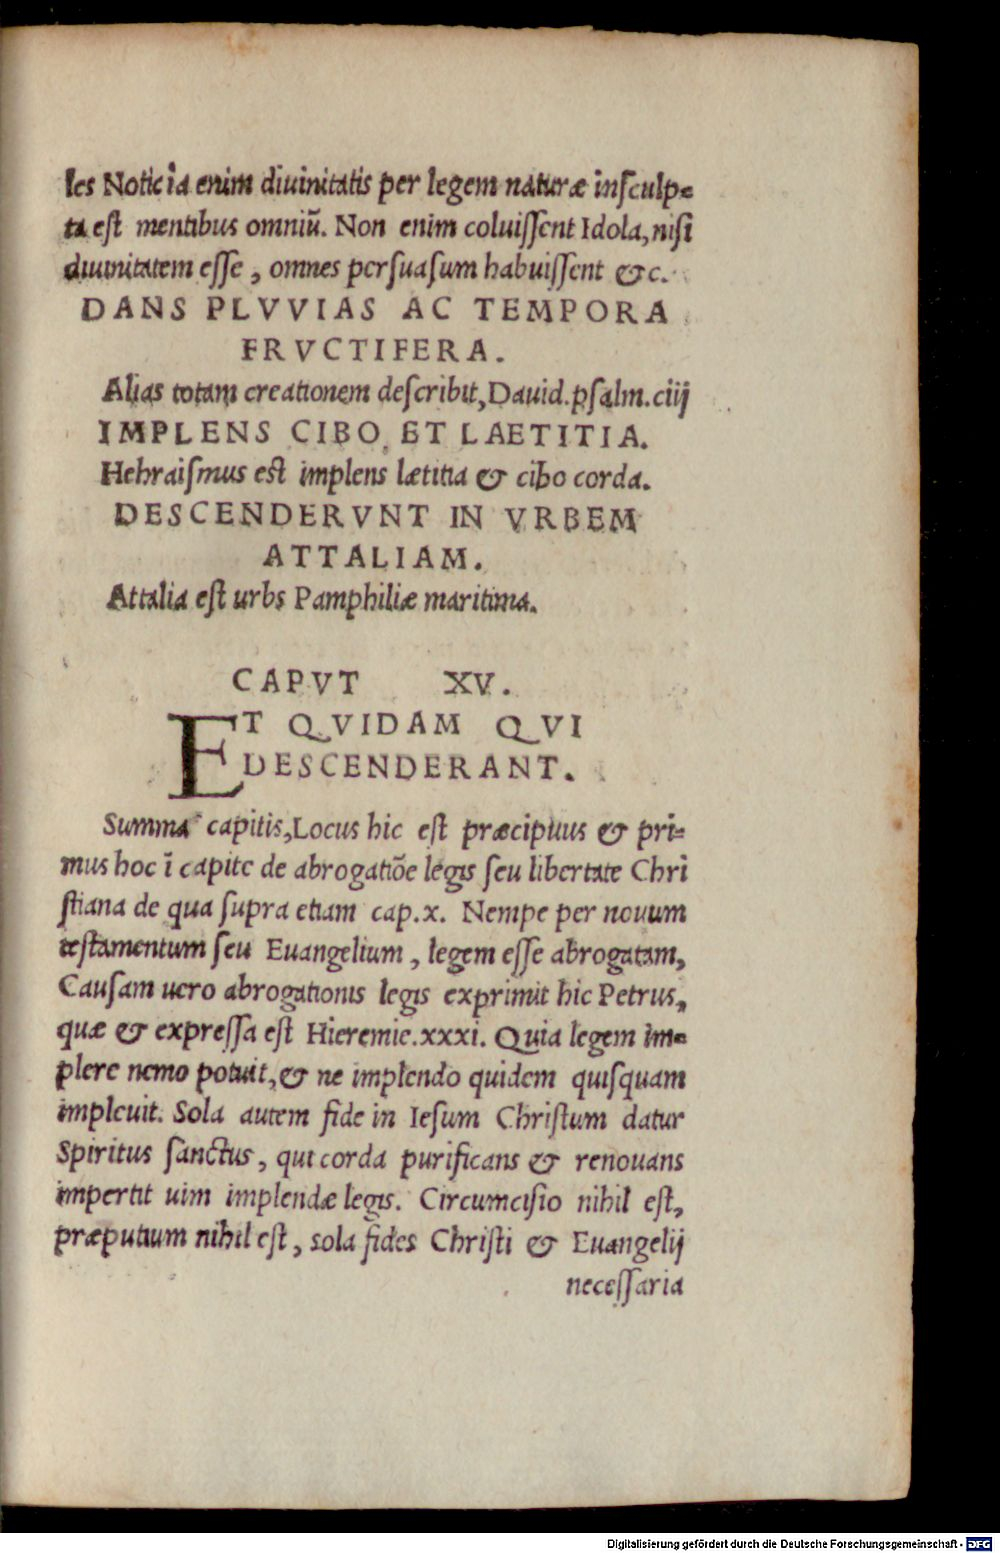 les Noticia enim diuinitatis per legem naturæ insculp=
ta est mentibus omniũ. Non enim coluissent Idola, nisi
diuinitatem esse, omnes persuasum habuissent &c.
DANS PLVVIAS AC TEMPORA
FRVCTIFERA.
Alias totam creationem describit, Dauid. psalm. ciij
IMPLENS CIBO ET LAETITIA.
Hebraismus est implens lætitia & cibo corda.
DESCENDERVNT IN VRBEM
ATTALIAM.
Attalia est urbs Pamphiliæ maritima.
CAPVT XV.
ET QVIDAM QVI
DESCENDERANT.
Summa capitis, Locus hic est præcipuus & pri=
mus hoc ĩ capite de abrogatiõe legis seu libertate Chri
stiana de qua supra etiam cap. x. Nempe per nouum
testamentum seu Euangelium, legem esse abrogatam,
Causam uero abrogationis legis exprimit hic Petrus,
quæ & expressa est Hieremie. xxxi. Quia legem im=
plere nemo potuit, & ne implendo quidem quisquam
impleuit. Sola autem fide in Iesum Christum datur
Spiritus sanctus, qui corda purificans & renouans
impertit uim implendæ legis. Circumcisio nihil est,
præputium nihil est, sola fides Christi & Euangelij
necessaria
Digitalisierung gefördert durch die Deutsche Forschungsgemeinschaft - DFG